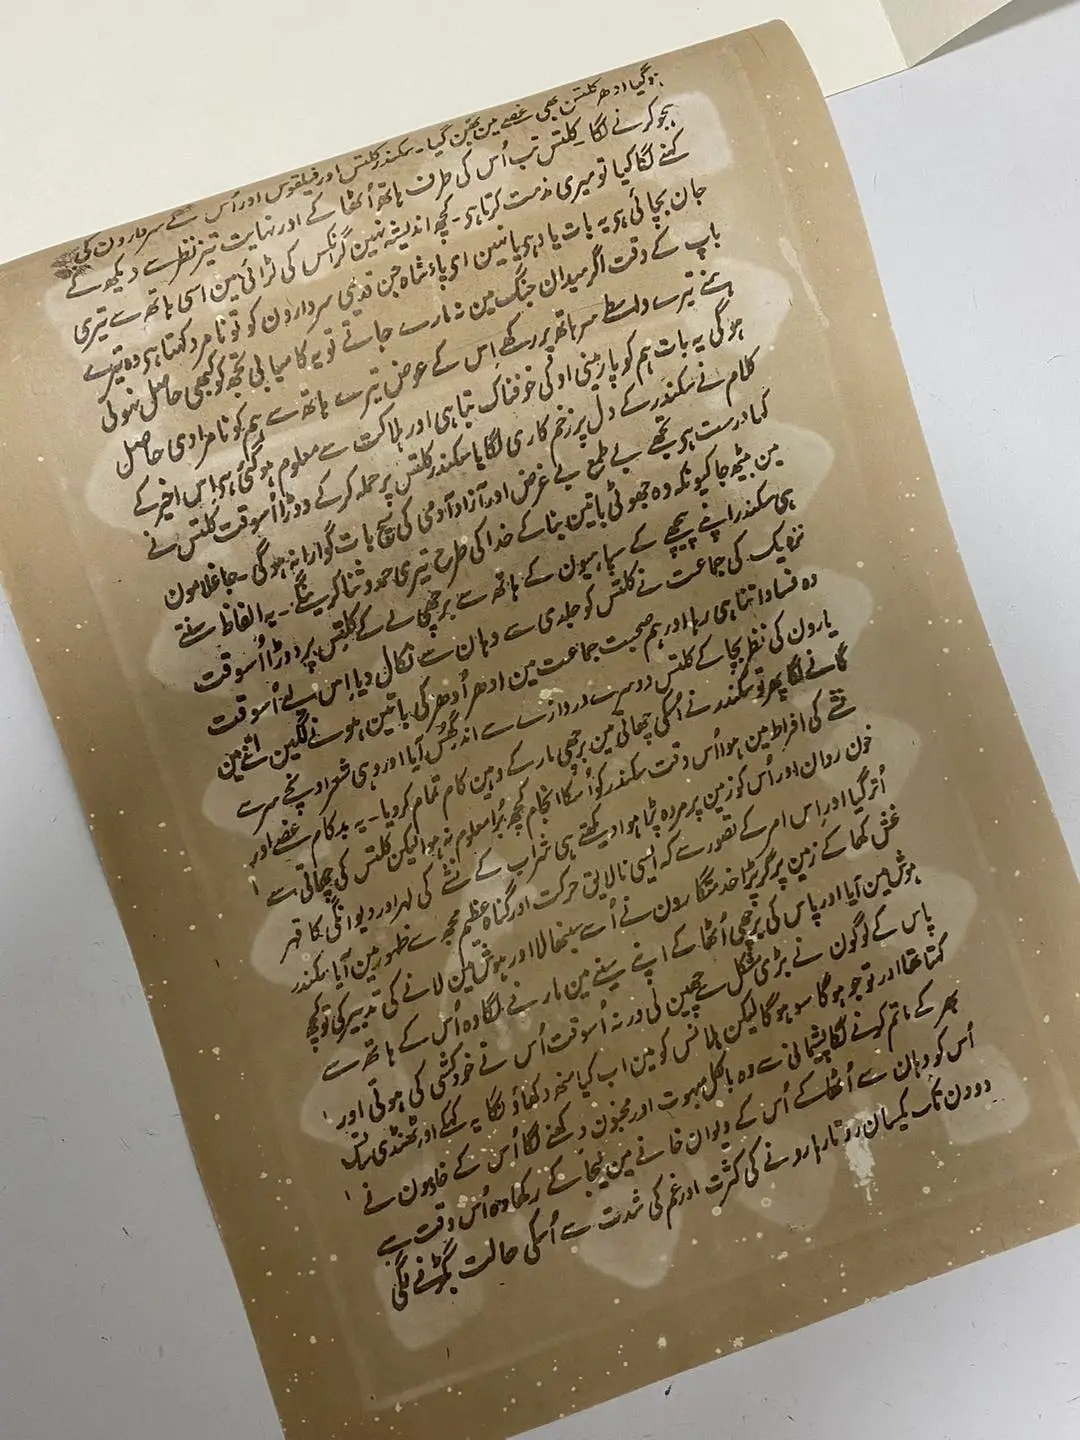 ہو گیا ادھر کلتس بھی غصے مین بھبن گیا ۔ سکندر کلتس اور فیلقوس اور اُس کے سردارون کی
ہجو کرنے لگا ۔ کلتس تب اُس کی طرف ہاتھ اُٹھا کے اور نہایت تیز نظر سے دیکھ کے
کہنے لگا کیا تو میری مذمت کرتا ہے ۔ کچھ اندیشہ نہین گرانکس کی لڑائی مین اسی ہاتھ سے تیری
جان بچائی ہے یہ بات یاد ہے یا نہین ای پادشاہ جن قدیمی سردارون کو تو نامرد کہتا ہے وہ تیرے
باپ کے وقت اگر میدان جنگ مین نہ مارے جاتے تو یہ کامیابی تجھ کو کبھی حاصل نہوتی
ہمنے تیرے واسطے سر ہاتھ پر رکھے اِس کے عوض تیرے ہاتھ سے ہم کو نامرادی حاصل
ہوگی یہ بات ہم کو پارمینی او کی خوفناک تباہی اور ہلاکت سے معلوم ہو گئی ہے اِس اخیر کے
کلام نے سکندر کے دل پر زخم کاری لگایا سکندر کلتس پر حملہ کر کے دوڑا اُسوقت کلتس نے
کہا درست ہے تجھے بے طمع بے غرض اور آزاد آدمی کی سچ بات گوارا نہ ہوگی ۔ جا غلامون
مین بیٹھ جا کیونکہ وہ جھوٹی باتین بنا کے خدا کی طرح تیری حمد و ثنا کرینگے ۔ یہ الفاظ سنتے
ہی سکندر اپنے پیچھے کے سپاہیون کے ہاتھ سے برچھی لے کے کلتس پر دوڑا اُسوقت
نزدیک کی جماعت نے کلتس کو جلدی سے وہان سے نکال دیا اِس لیے اُسوقت
وہ فساد اتنا ہی رہا اور ہم صحبت جماعت مین ادھر اُدھر کی باتین ہونے لگین اتنے مین
یارون کی نظر بچا کے کلتس دوسرے دروازے سے اندر گھس آیا اور وہی شعر اونچے سر سے
گانے لگا پھر تو سکندر نے اُسکی چھاتی مین برچھی مار کے وہین کام تمام کر دیا ۔ یہ بد کام غصے اور
نشے کی افراط مین ہوا اُس وقت سکندر کو اُسکا انجام کچھ بُرا معلوم نہ ہوا لیکن کلتس کی چھاتی سے
خون روان اور اُس کو زمین پر مردہ پڑا ہوا دیکھتے ہی شراب کے نشے کی لہر اور دیوانگی کا قہر
اُتر گیا اور اِس امر کے تصور سے کہ ایسی نالایق حرکت اور گناہ عظیم مجھ سے ظہور مین آیا سکندر
غش کھا کے زمین پر گر پڑا خدمتگارون نے اُسے سنبھالا اور ہوش مین لانے کی تدبیر کی تو کچھ
ہوش مین آیا اور پاس کی برچھی اُٹھا کے اپنے سینے مین مارنے لگا وہ اُس کے ہاتھ سے
پاس کے لوگون نے بڑی مشکل سے چھین لی ورنہ اُسوقت اُس نے خودکشی کی ہوتی اور
کہتا تھا اور تو جو ہوگا سو ہوگا لیکن ہلانس کو مین اب کیا منہ دکھاؤنگا یہ کہکے اور ٹھنڈی سانس
بھر کے ماتم کرنے لگا پشیمانی سے وہ بالکل مبہوت اور مجنون دکھنے لگا اُس کے خادمون نے
اُس کو وہان سے اُٹھا کے اُس کے دیوان خانے مین لیجا کے رکھا وہ اُس وقت سے
دو دن تک یکسان روتا رہا رونے کی کثرت اور غم کی شدت سے اُسکی حالت بگڑنے لگی